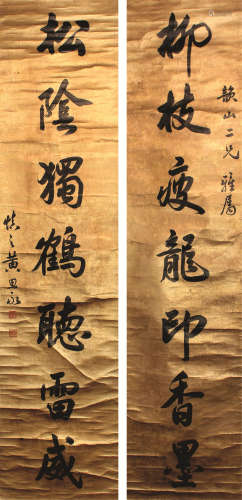 韻山二兄雅屬
柳枝疲龍印香墨
松陰獨鶴聽雷威
慎之黃思永